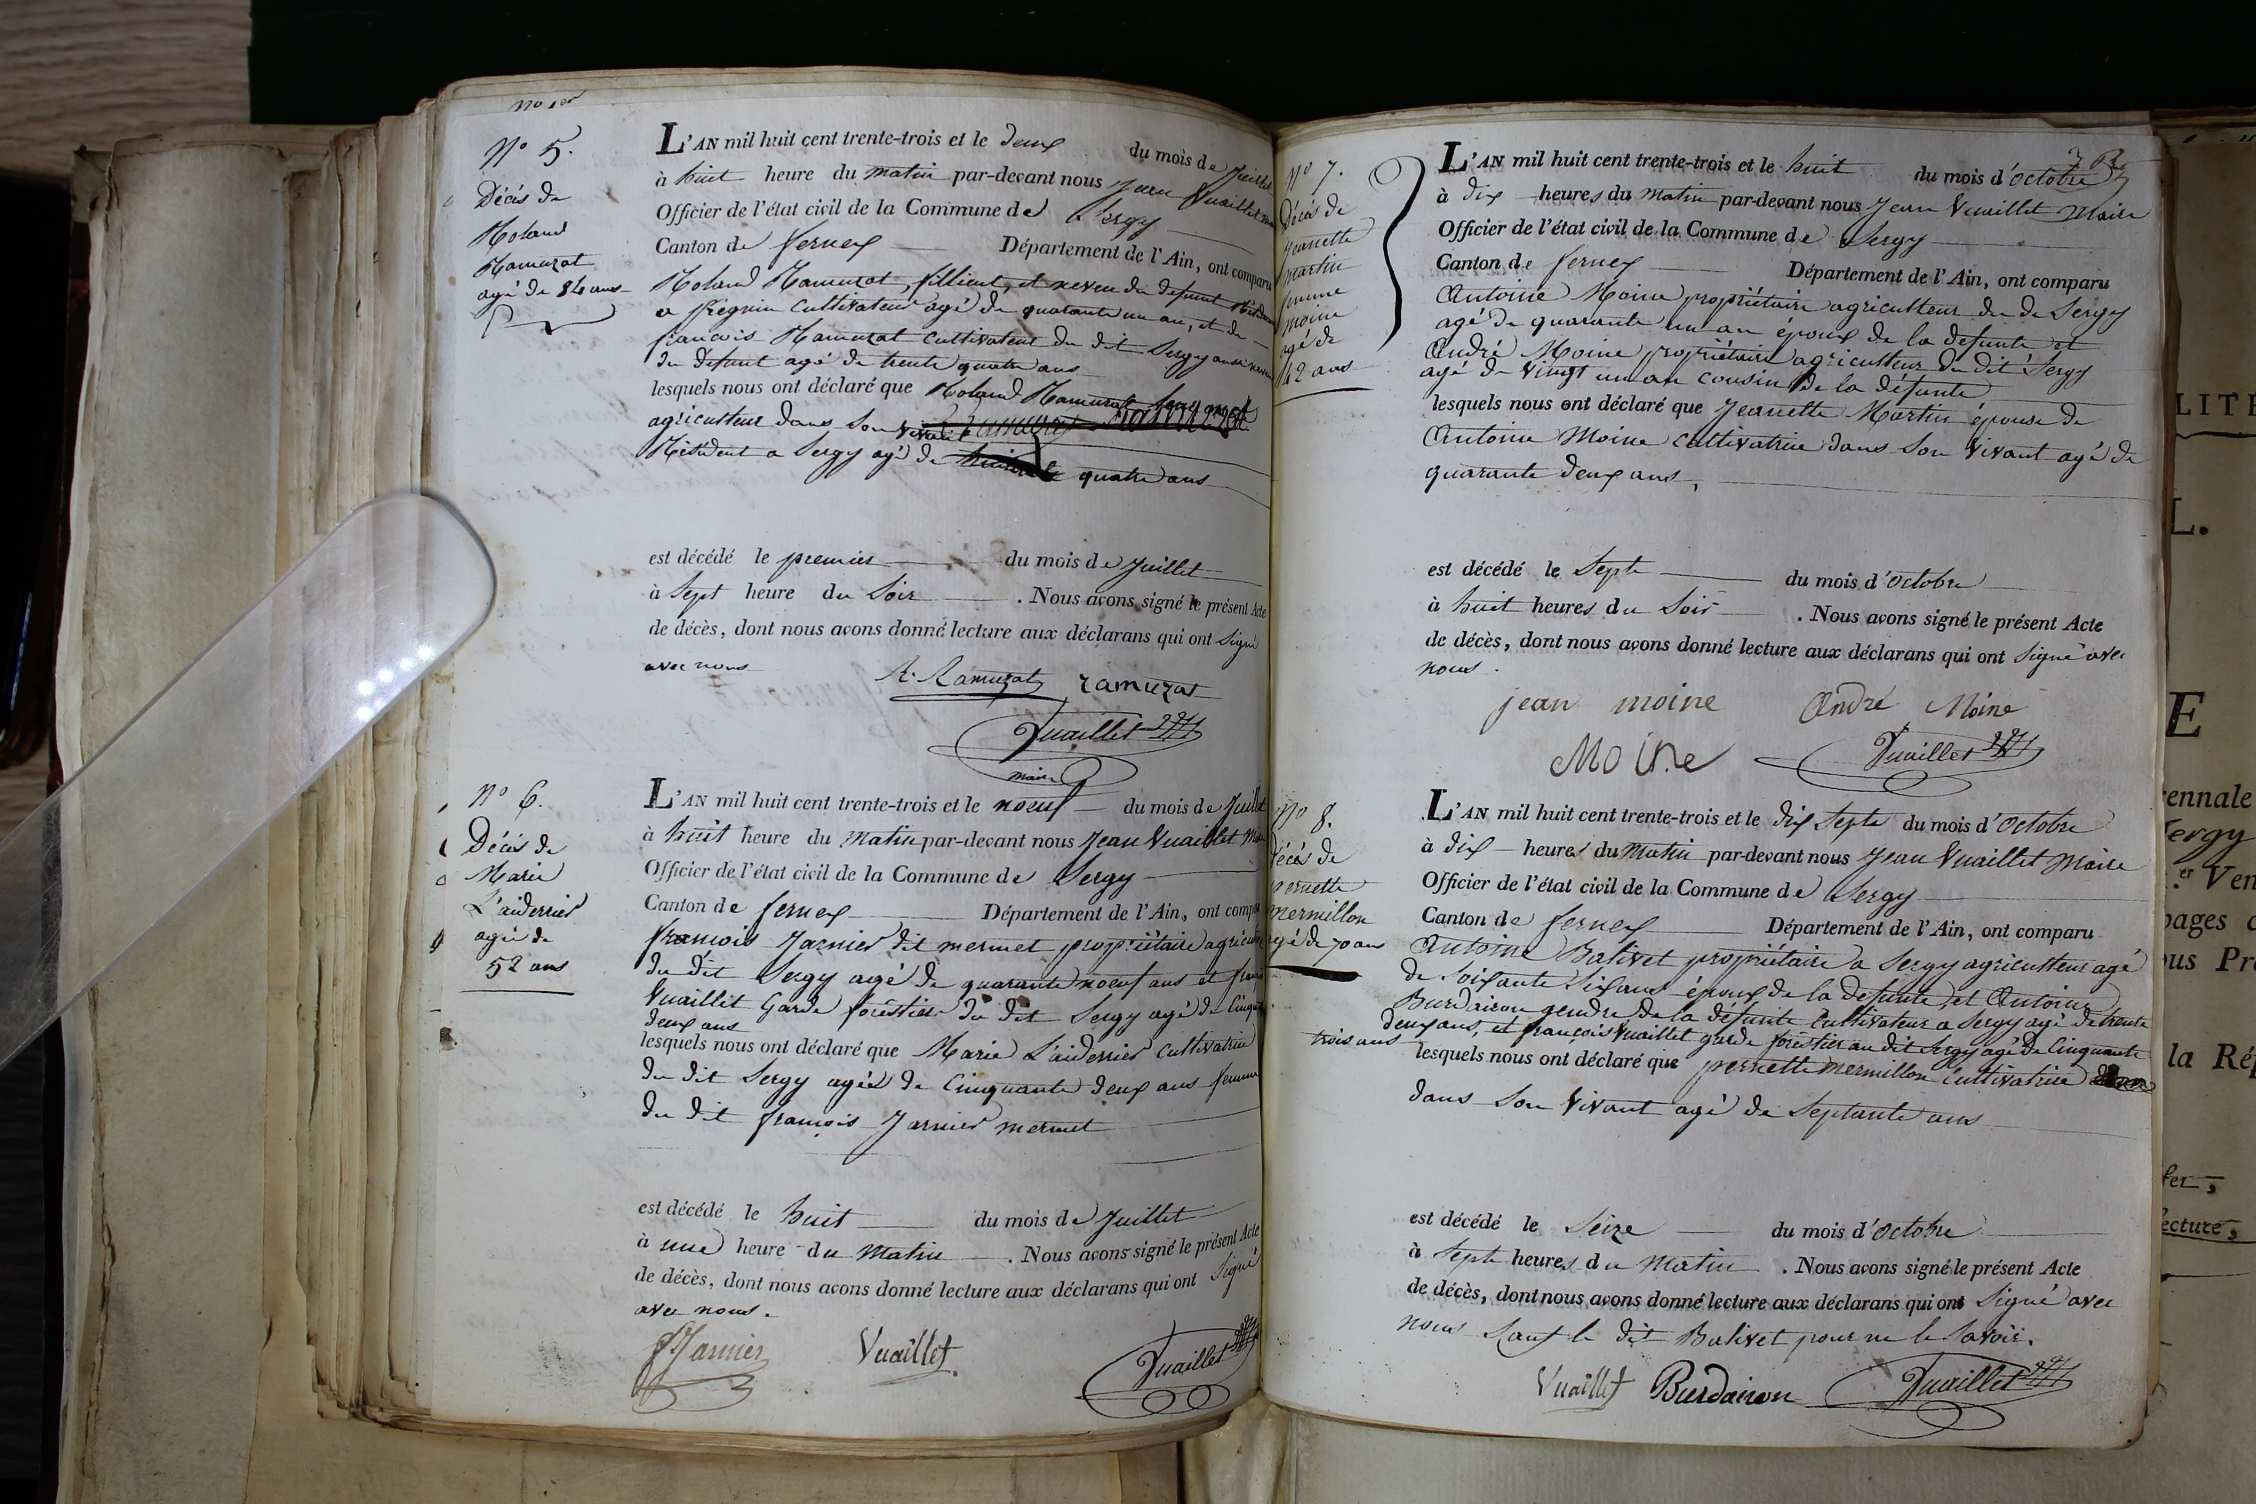 no 1er
No 5.
Décès de
Roland
Ramuzat
agé de 84 ans
L'AN mil huit cent trente-trois et le deux du mois de Juillet
à huit heure du matin par-devant nous Jean Vuaillet
Officier de l'état civil de la Commune de Sergy
Canton de ferney Département de l'Ain, ont comparu
Roland Ramuzat, fillieul, et neveu du defunt
a frégnin cultivateur agé de quarante un an, et de
francois Ramuzat cultivateur du dit Sergy aussi neveu
du defunt agé de trente quatre ans
lesquels nous ont déclaré que Roland Ramuzat
agriculteur dans son vivant
Résident a Sergy agé de quatre ans
est décédé le premier du mois de Juillet
à Sept heure du Soir . Nous avons signé le présent Acte
de décès, dont nous avons donné lecture aux déclarans qui ont Signé
avec nous
R. Ramuzat ramuzat
Vuaillet
maire
No 6.
Décès de
Marie
L'aiderrier
agée de
52 ans
L'AN mil huit cent trente-trois et le noeuf du mois de Juillet
à huit heure du matin par-devant nous Jean Vuaillet
Officier de l'état civil de la Commune de Sergy
Canton de ferney Département de l'Ain, ont
francois Jarnier dit mermet propriétaire
du dit Sergy agé de quarante noeuf ans et
Vuaillit Garde forestier du dit Sergy agé de
deux ans
lesquels nous ont déclaré que Marie L'aiderrier cultivatrice
du dit Sergy agée de Cinquante deux ans femme
du dit francois Jarnier mermet
est décédé le huit du mois de Juillet
à une heure du Matin . Nous avons signé le présent Acte
de décès, dont nous avons donné lecture aux déclarans qui ont Signé
avec nous.
Jarnier Vuaillet Vuaillet
No 7.
Décès de
Jeanette
martin
femme
moine
agé de
42 ans
L'AN mil huit cent trente-trois et le huit du mois d'octobre
à dix heures du matin par-devant nous Jean Vuaillet Maire
Officier de l'état civil de la Commune de Sergy
Canton de ferney Département de l'Ain, ont comparu
Antoine Moine propriétaire agriculteur du de Sergy
agé de quarante un an époux de la defunte et
André Moine propriétaire agriculteur du dit Sergy
agé de vingt un an cousin de la défunte
lesquels nous ont déclaré que Jeanette Martin épouse de
Antoine Moine cultivatrice dans son vivant agé de
quarante deux ans,
est décédé le Septe du mois d'octobre
à huit heures du Soir . Nous avons signé le présent Acte
de décès, dont nous avons donné lecture aux déclarans qui ont Signé avec
nous.
jean moine André Moine
Moine Vuaillet
No 8.
Décès de
pernette
mermillon
agé de 70 ans
L'AN mil huit cent trente-trois et le dix Septe du mois d'octobre
à dix heures du Matin par-devant nous Jean Vuaillet Maire
Officier de l'état civil de la Commune de Sergy
Canton de ferney Département de l'Ain, ont comparu
Antoine Balivet propriétaire a Sergy agriculteur agé
de Soixante Six ans époux de la defunte, et Antoine
Burdairon gendre de la défunte cultivateur a Sergy agé de trente
deux ans, et francois Vuaillet garde forestier au dit Sergy agé de Cinquante
trois ans
lesquels nous ont déclaré que pernette mermillon cultivatrice
dans son vivant agé de Septante ans
est décédé le Seize du mois d'octobre
à Septe heures du Matin . Nous avons signé le présent Acte
de décès, dont nous avons donné lecture aux déclarans qui ont Signé avec
nous Sauf le dit Balivet pour ne le Savoir.
Vuaillet Burdairon Vuaillet
LITE
L.
E
ennale
Sergy
.er Ven
pages
ous Pr
la Ré
fer,
ecture,